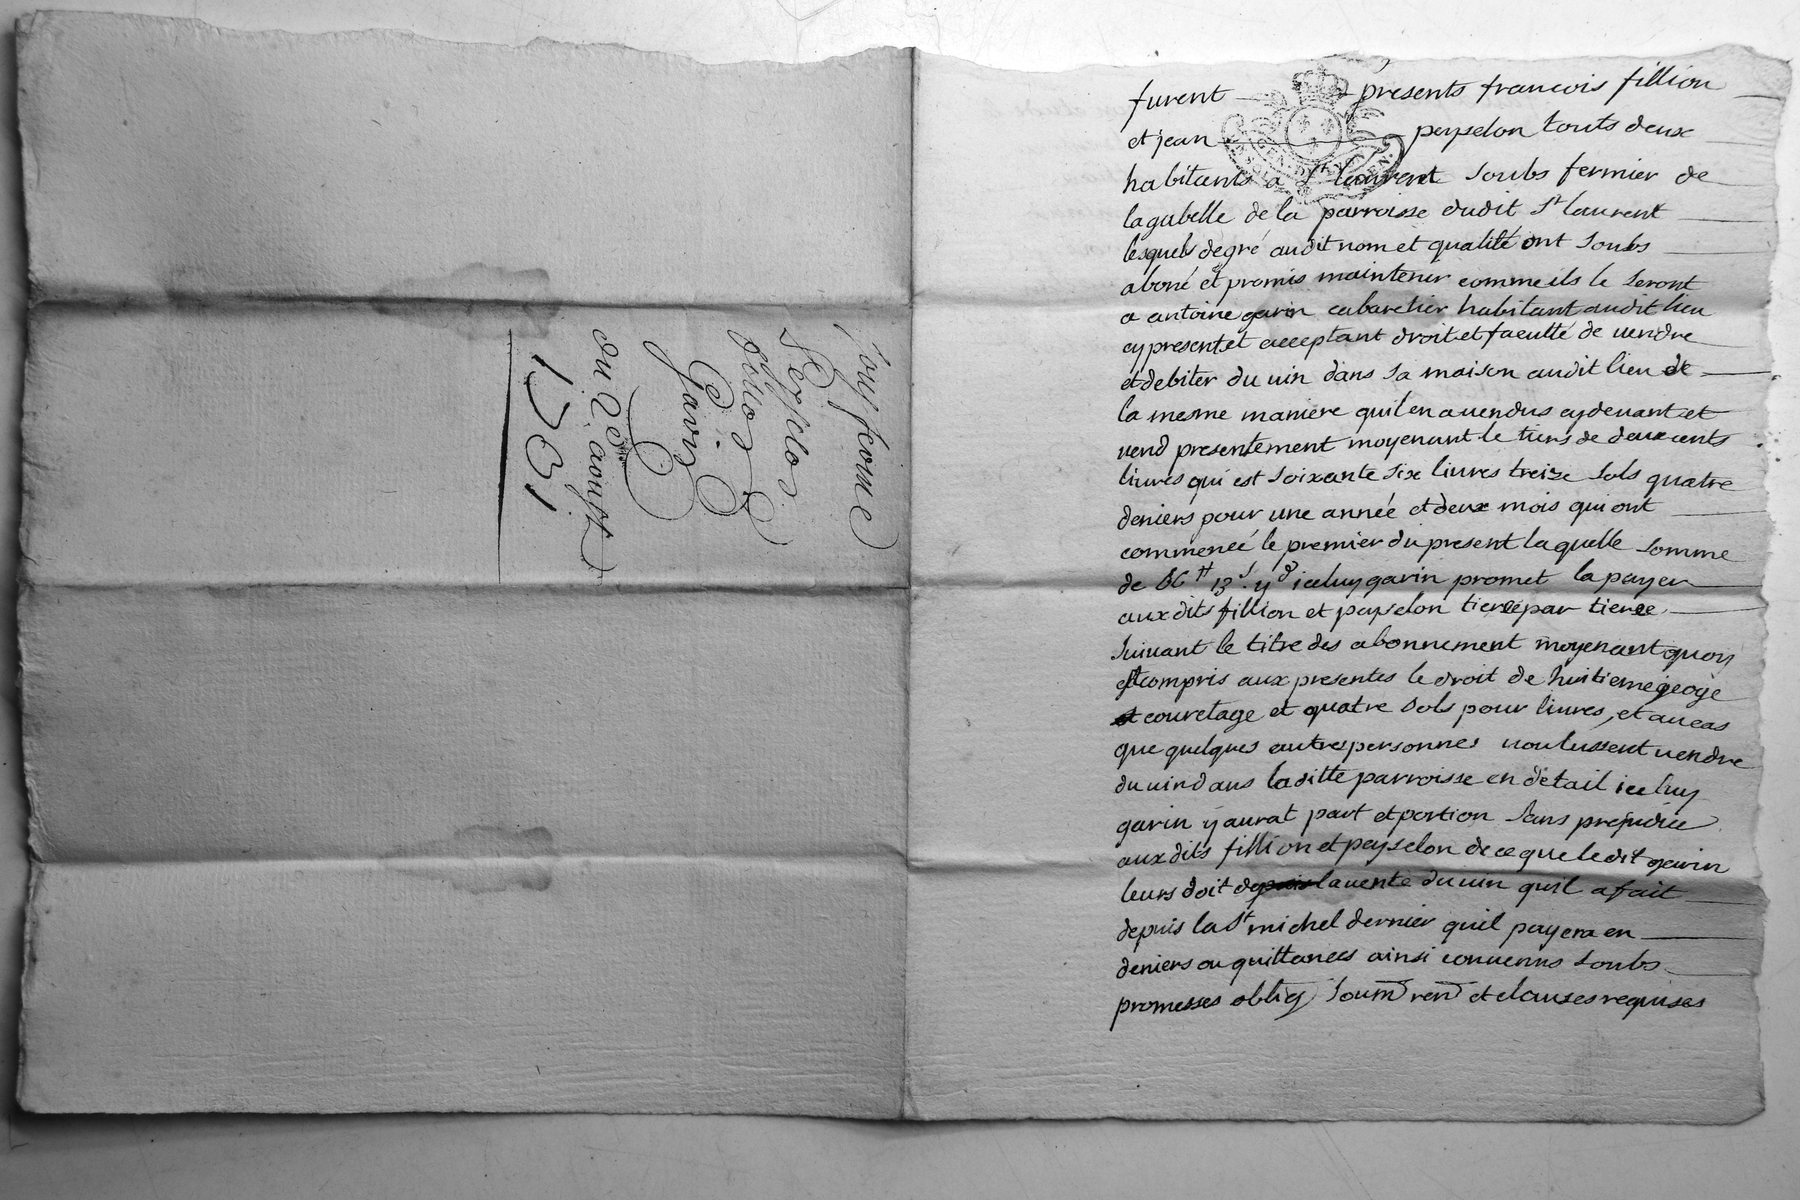 sousferme
Peyselon
fillion &
Garin
du 28 aoust
1761
furent presents francois fillion
et jean peyselon touts deux
habitants a St laurent soubs fermier de
la gabelle de la parroisse dudit St laurent
lesquels de gré audit nom et qualité ont soubs
aboné et promis maintenir comme ils le seront
a antoine garin cabaretier habitant audit lieu
cy present et acceptant droit et faculté de vendre
et debiter du vin dans sa maison audit lieu de
la mesme maniere quil en a vendus cy devant et
vend presentement moyenant le tiers de deux cents
livres qui est soixante six livres treize sols quatre
deniers pour une année et deux mois qui ont
commencé le premier du present laquelle somme
de 66 # 13 s. 4 d icelluy garin promet la payer
aux dits fillion et peyselon tierce par tierce
suivant le titre des abonnement moyenant quoy
est compris aux presentes le droit de huitieme jeoge
couretage et quatre sols pour livres, et au cas
que quelques autres personnes voulussent vendre
du vin dans laditte parroisse en détail icelluy
garin y aurat part et portion sans prejudice
aux dits fillion et peyselon de ce que le dit garin
leurs doit la vente du vin quil a fait
depuis la St michel dernier quil payera en
deniers ou quittances ainsi convenus soubs
promesses oblig soum ren et clauses requises